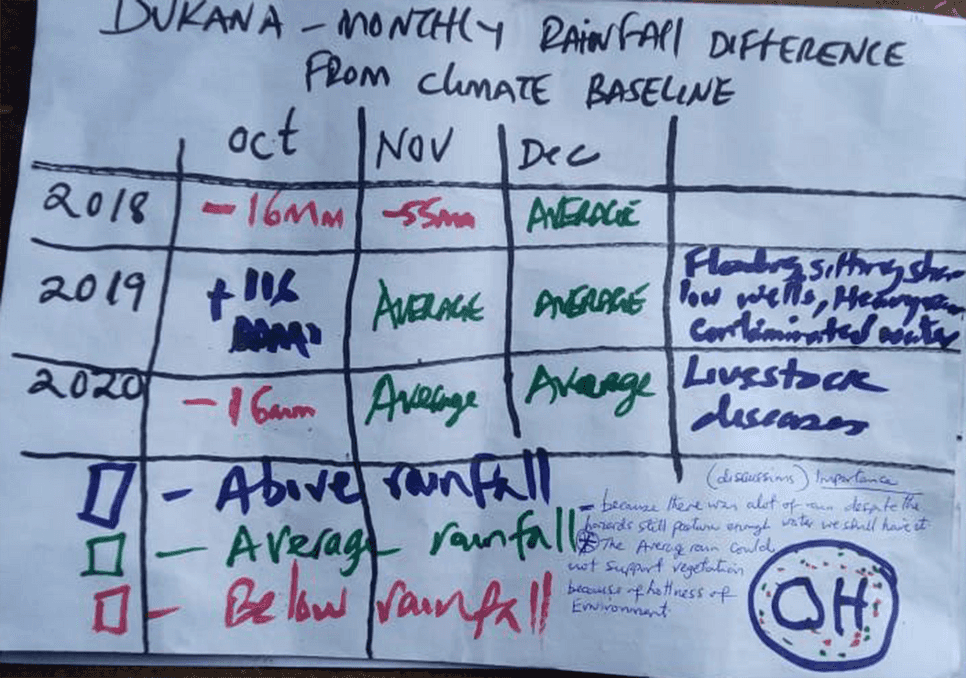 DUKANA - MONTHLY RAINFALL DIFFERENCE
FROM CLIMATE BASELINE
Oct NOV Dec
2018 -16Mm -55mm AVERAGE
2019 +116 AVERAGE AVERAGE Flooding, sitting shallow
low wells,
contaminated water
2020 -16mm Average Average Livestock
diseases
- Above rainfall
- Average rainfall
- Below rainfall
(discussions) Importance
- because there was alot of rain despite the
hazards still pasture enough water we shall have it
The Averag rain could
not support vegetation
because of hotness of
Environment
OH